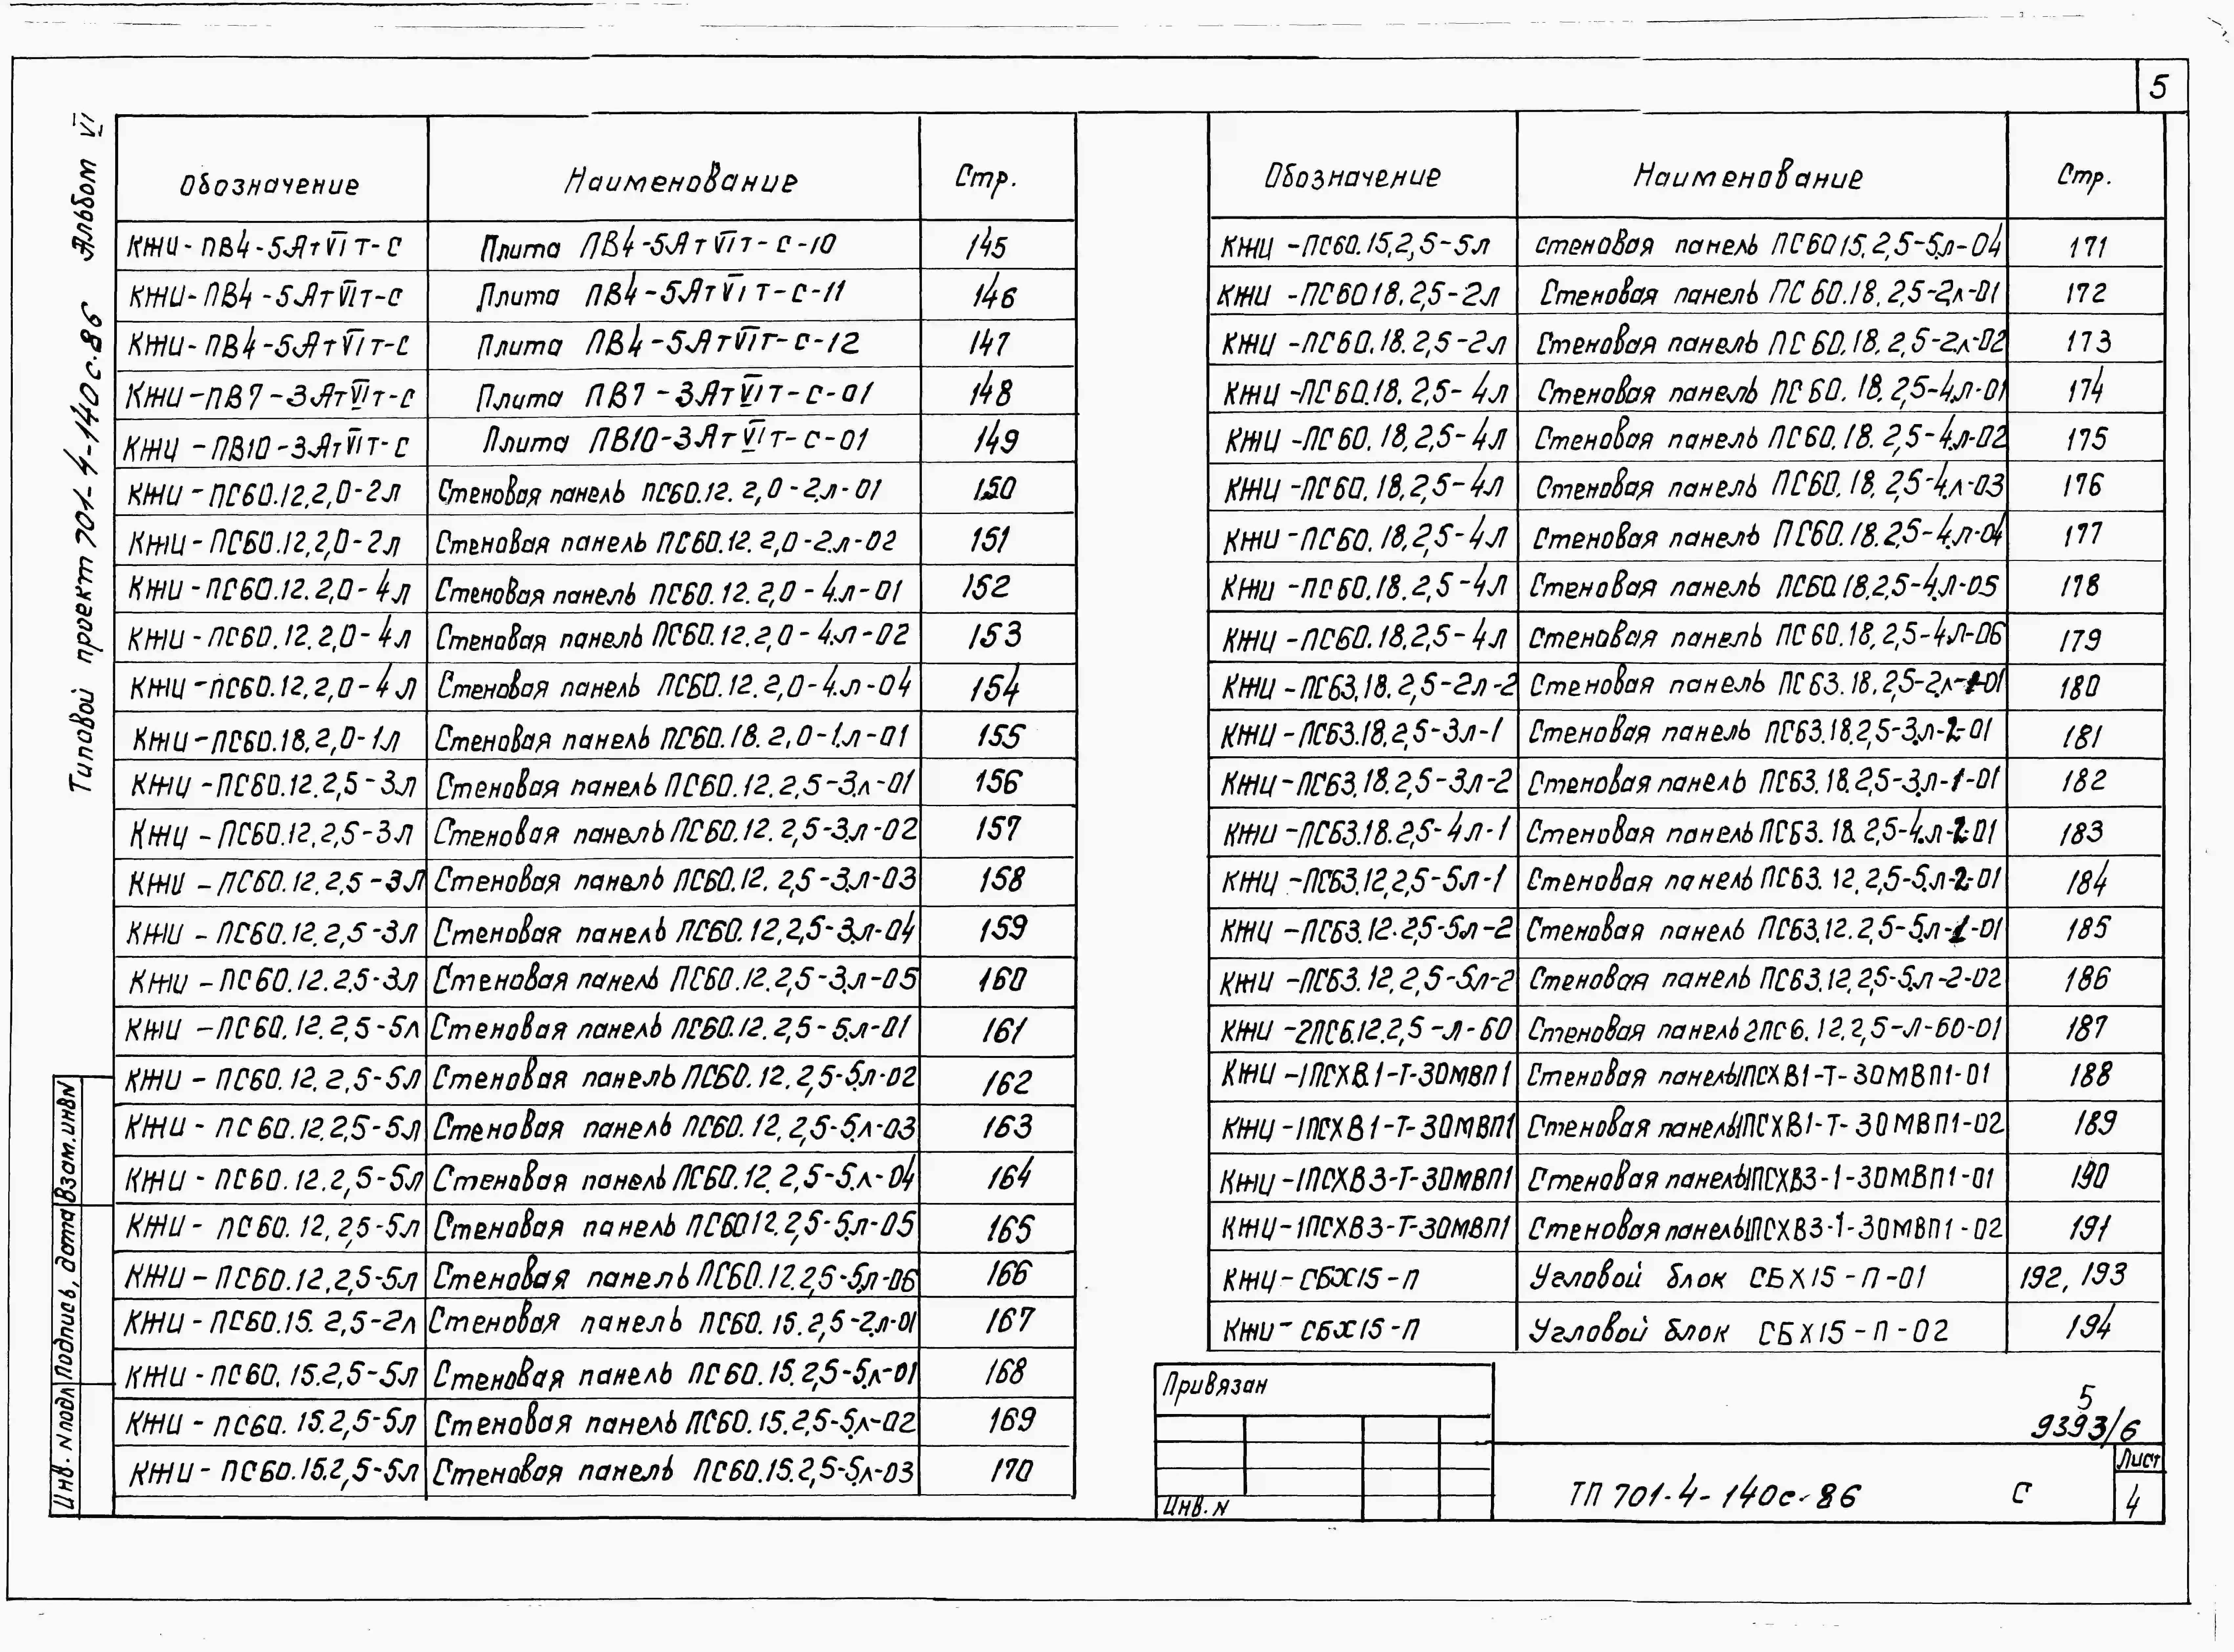 5
Типовой проект 701-4-140с.86 Альбом VI
Обозначение Наименование Стр.
КЖИ-ПВ4-5АтVIт-С Плита ПВ4-5АтVIт-С-10 145
КЖИ-ПВ4-5АтVIт-С Плита ПВ4-5АтVIт-С-11 146
КЖИ-ПВ4-5АтVIт-С Плита ПВ4-5АтVIт-С-12 147
КЖИ-ПВ7-3АтVIт-С Плита ПВ7-3АтVIт-С-01 148
КЖИ-ПВ10-3АтVIт-С Плита ПВ10-3АтVIт-С-01 149
КЖИ-ПС60.12.2,0-2л Стеновая панель ПС60.12.2,0-2л-01 150
КЖИ-ПС60.12.2,0-2л Стеновая панель ПС60.12.2,0-2л-02 151
КЖИ-ПС60.12.2,0-4л Стеновая панель ПС60.12.2,0-4л-01 152
КЖИ-ПС60.12.2,0-4л Стеновая панель ПС60.12.2,0-4л-02 153
КЖИ-ПС60.12.2,0-4л Стеновая панель ПС60.12.2,0-4л-04 154
КЖИ-ПС60.18.2,0-1л Стеновая панель ПС60.18.2,0-1л-01 155
КЖИ-ПС60.12.2,5-3л Стеновая панель ПС60.12.2,5-3л-01 156
КЖИ-ПС60.12.2,5-3л Стеновая панель ПС60.12.2,5-3л-02 157
КЖИ-ПС60.12.2,5-3л Стеновая панель ПС60.12.2,5-3л-03 158
КЖИ-ПС60.12.2,5-3л Стеновая панель ПС60.12.2,5-3л-04 159
КЖИ-ПС60.12.2.5-3л Стеновая панель ПС60.12.2,5-3л-05 160
КЖИ-ПС60.12.2,5-5л Стеновая панель ПС60.12.2,5-5л-01 161
КЖИ-ПС60.12.2,5-5л Стеновая панель ПС60.12.2,5-5л-02 162
КЖИ-ПС60.12.2,5-5л Стеновая панель ПС60.12.2,5-5л-03 163
КЖИ-ПС60.12.2,5-5л Стеновая панель ПС60.12.2,5-5л-04 164
КЖИ-ПС60.12,2,5-5л Стеновая панель ПС6012.2,5-5л-05 165
КЖИ-ПС60.12,2,5-5л Стеновая панель ПС60.12.2,5-5л-06 166
КЖИ-ПС60.15.2,5-2л Стеновая панель ПС60.15.2,5-2л-01 167
КЖИ-ПС60.15.2,5-5л Стеновая панель ПС60.15.2,5-5л-01 168
КЖИ-ПС60.15.2,5-5л Стеновая панель ПС60.15.2,5-5л-02 169
КЖИ-ПС60.15.2,5-5л Стеновая панель ПС60.15.2,5-5л-03 170
Обозначение Наименование Стр.
КЖИ-ПС60.15.2,5-5л Стеновая панель ПС6015.2,5-5л-04 171
КЖИ-ПС6018.2,5-2л Стеновая панель ПС60.18.2,5-2л-01 172
КЖИ-ПС60.18.2,5-2л Стеновая панель ПС60.18.2,5-2л-02 173
КЖИ-ПС60.18.2,5-4л Стеновая панель ПС60.18.2,5-4л-01 174
КЖИ-ПС60.18.2,5-4л Стеновая панель ПС60.18.2,5-4л-02 175
КЖИ-ПС60.18.2,5-4л Стеновая панель ПС60.18.2,5-4л-03 176
КЖИ-ПС60.18.2,5-4л Стеновая панель ПС60.18.2,5-4л-04 177
КЖИ-ПС60.18.2,5-4л Стеновая панель ПС60.18.2,5-4л-05 178
КЖИ-ПС60.18.2,5-4л Стеновая панель ПС60.18.2,5-4л-06 179
КЖИ-ПС63.18.2,5-2л-2 Стеновая панель ПС63.18.2,5-2л-1-01 180
КЖИ-ПС63.18.2,5-3л-1 Стеновая панель ПС63.18.2,5-3л-2-01 181
КЖИ-ПС63.18.2,5-3л-2 Стеновая панель ПС63.18.2,5-3л-1-01 182
КЖИ-ПС63.18.2,5-4л-1 Стеновая панель ПС63.18.2,5-4л-2-01 183
КЖИ-ПС63.12,2,5-5л-1 Стеновая панель ПС63.12.2,5-5л-2-01 184
КЖИ-ПС63.12.2,5-5л-2 Стеновая панель ПС63.12.2,5-5л-1-01 185
КЖИ-ПС63.12,2,5-5л-2 Стеновая панель ПС63.12.2,5-5л-2-02 186
КЖИ-2ПС6.12.2,5-л-60 Стеновая панель 2ПС6.12.2,5-л-60-01 187
КЖИ-1ПСХВ1-Т-30МВП1 Стеновая панель 1ПСХВ1-Т-30МВП1-01 188
КЖИ-1ПСХВ1-Т-30МВП1 Стеновая панель 1ПСХВ1-Т-30МВП1-02 189
КЖИ-1ПСХВ3-Т-30МВП1 Стеновая панель 1ПСХВ3-1-30МВП1-01 190
КЖИ-1ПСХВ3-Т-30МВП1 Стеновая панель 1ПСХВ3-1-30МВП1-02 191
КЖИ-СБХ15-П Угловой блок СБХ15-П-01 192, 193
КЖИ-СБХ15-П Угловой блок СБХ15-П-02 194
Инв. N подл Подпись, дата Взам.инвN
Привязан
Инв. N
5
9393/6
ТП 701-4-140с-86 С
Лист
4